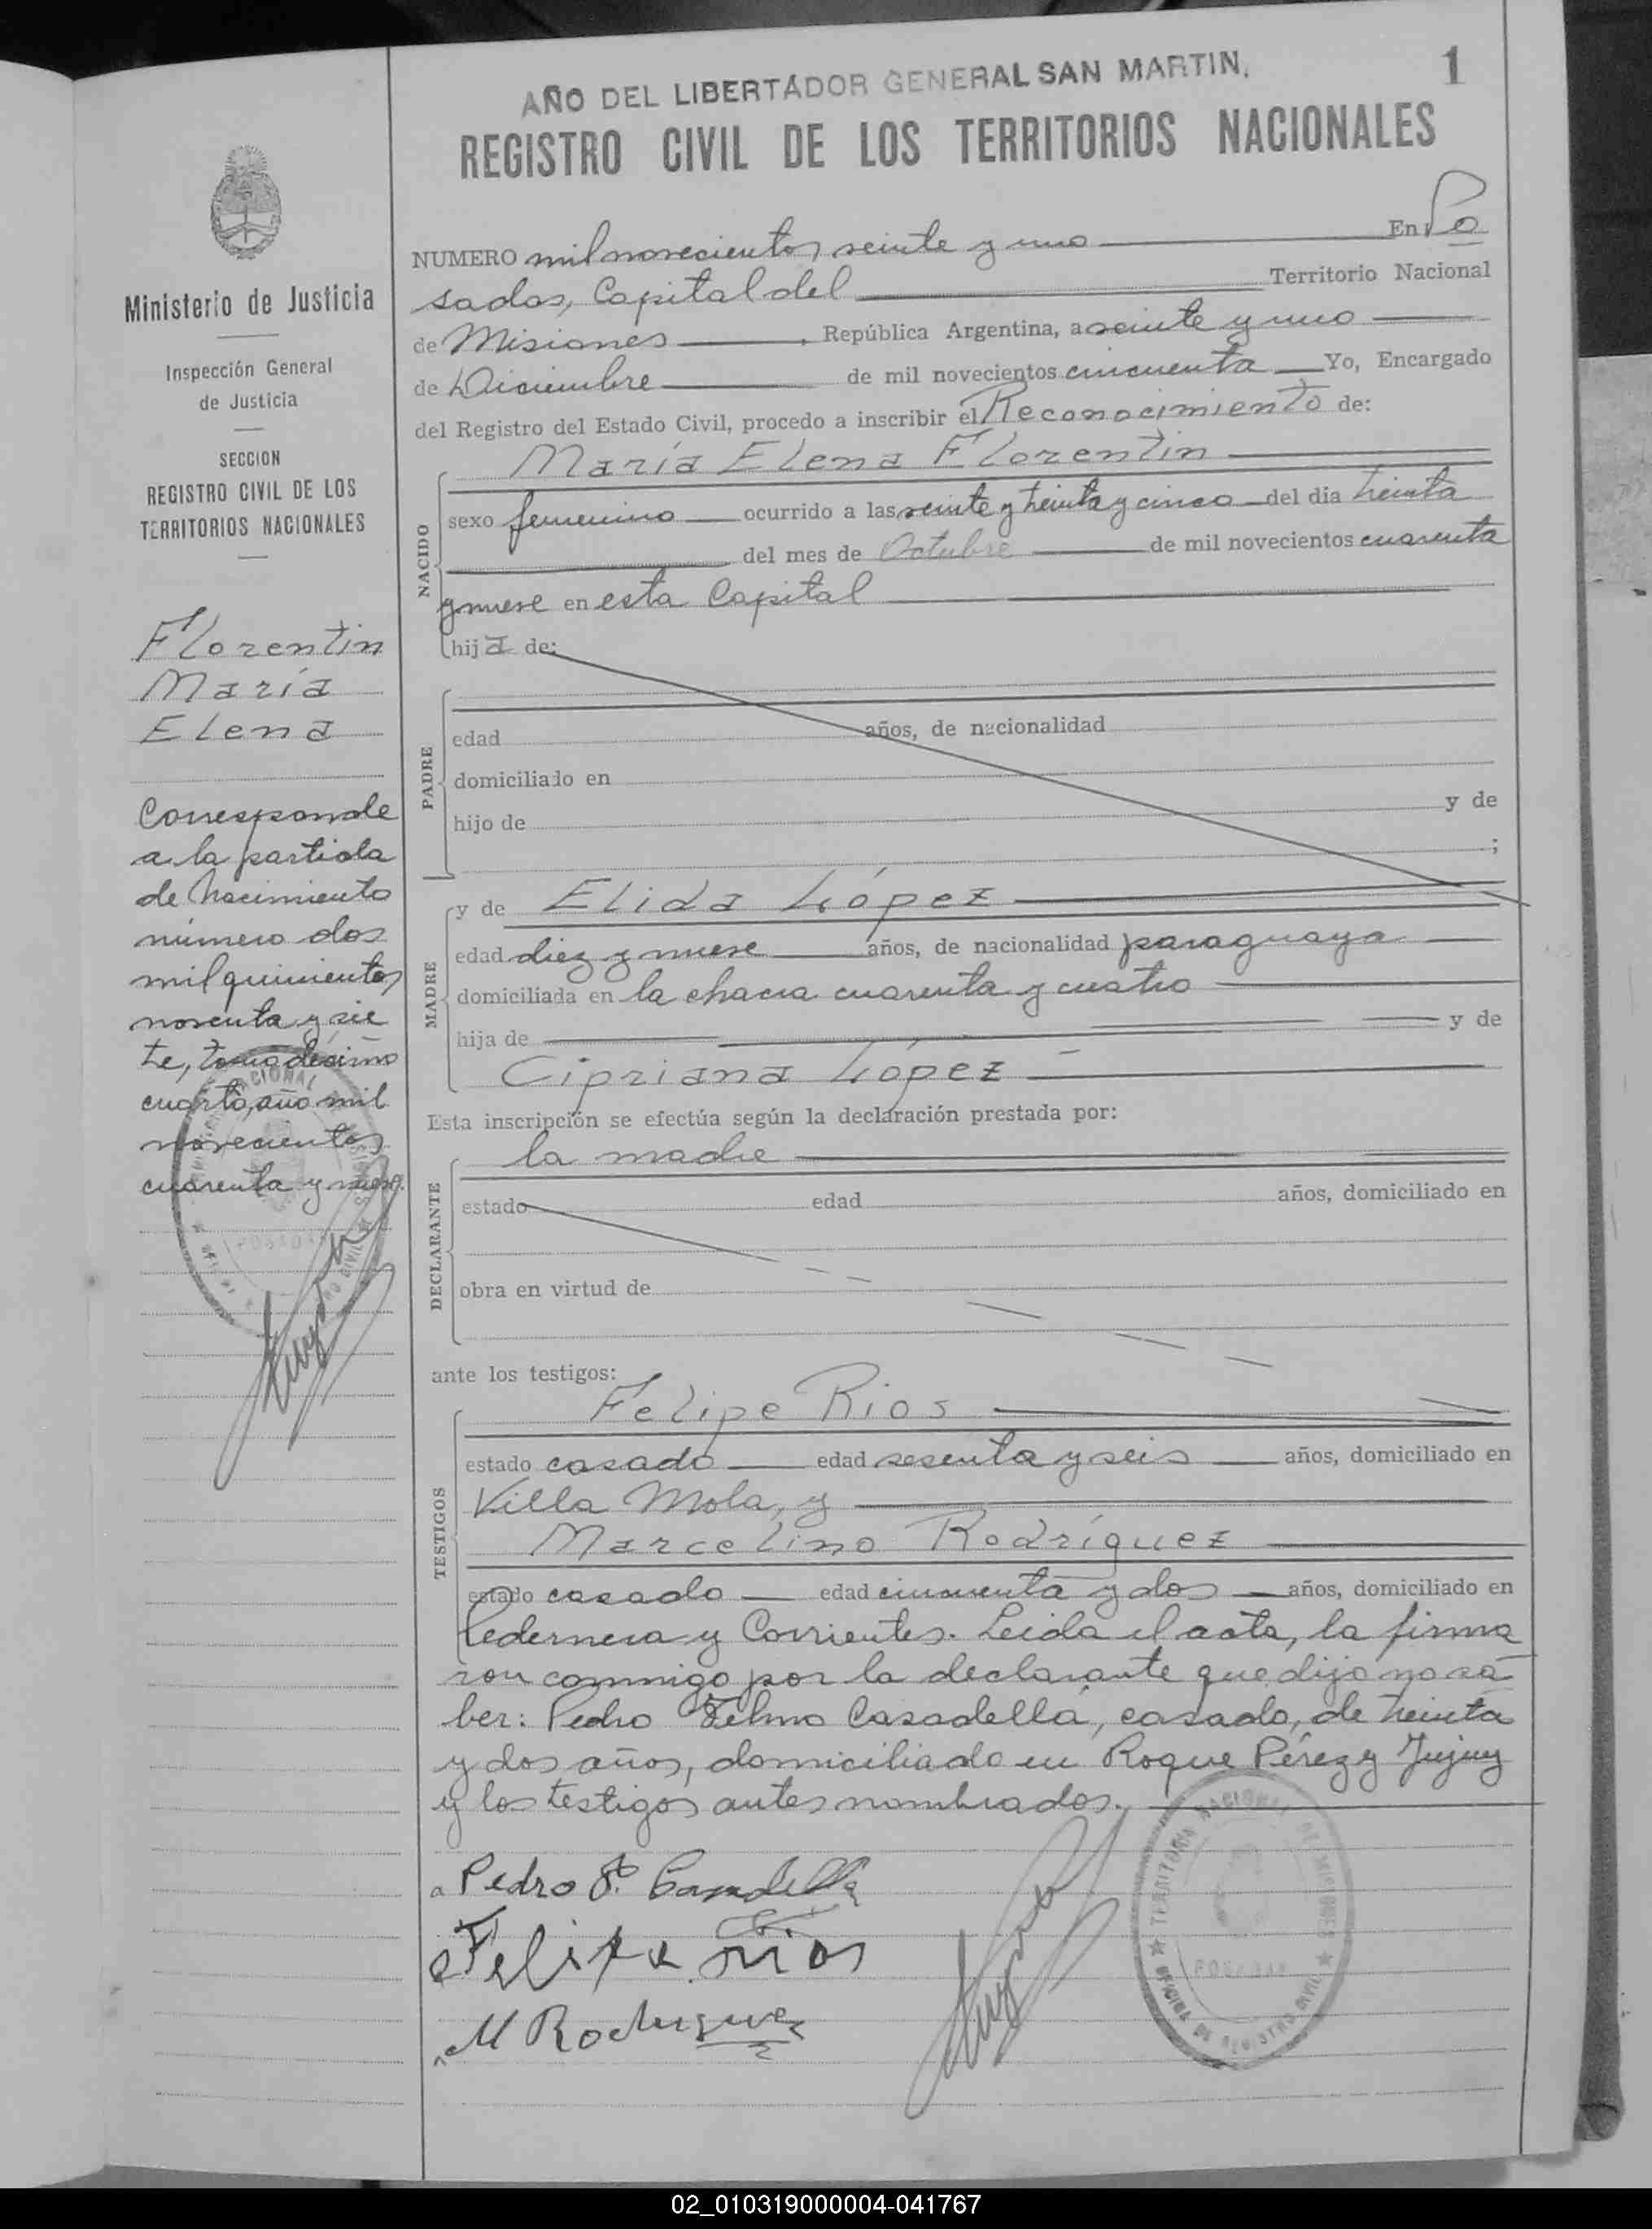 AÑO DEL LIBERTADOR GENERAL SAN MARTIN,
1
REGISTRO CIVIL DE LOS TERRITORIOS NACIONALES
Ministerio de Justicia
Inspección General
de Justicia
SECCION
REGISTRO CIVIL DE LOS
TERRITORIOS NACIONALES
Florentin
María
Elena
Corresponde
a la partida
de nacimiento
número dos
mil quinientos
noventa y sie
te, tomo décimo
cuarto, año mil
novecientos
cuarenta y nueve.
NUMERO mil novecientos veinte y uno En Po
sadas, Capital del Territorio Nacional
de Misiones, República Argentina, a veinte y uno
de Diciembre de mil novecientos cincuenta Yo, Encargado
del Registro del Estado Civil, procedo a inscribir el Reconocimiento de:
María Elena Florentin
NACIDO
sexo femenino ocurrido a las veinte y treinta y cinco del dia treinta
del mes de Octubre de mil novecientos cuarenta
y nueve en esta Capital
hija de:
PADRE
edad años, de nacionalidad
domiciliado en
hijo de y de
;
y de Elida López
MADRE
edad diez y nueve años, de nacionalidad paraguaya
domiciliada en la chacra cuarenta y cuatro
hija de y de
Cipriana López
Esta inscripción se efectúa según la declaración prestada por:
la madre
DECLARANTE
estado edad años, domiciliado en
obra en virtud de
ante los testigos:
Felipe Rios
TESTIGOS
estado casado edad sesenta y seis años, domiciliado en
Villa Mola, y
Marcelino Rodríguez
estado casado edad cincuenta y dos años, domiciliado en
Pedernera y Corrientes. Leida el acta, la firma
ron conmigo por la declarante que dijo no sa
ber: Pedro Telmo Casadellá, casado, de treinta
y dos años, domiciliado en Roque Pérez y Jujuy
y los testigos antes nombrados.
Pedro T. Casadella
Felipe Rios
M Rodriguez
TERRITORIO NACIONAL DE MISIONES
POSADAS
OFICINA DE REGISTRO CIVIL
02_010319000004-041767